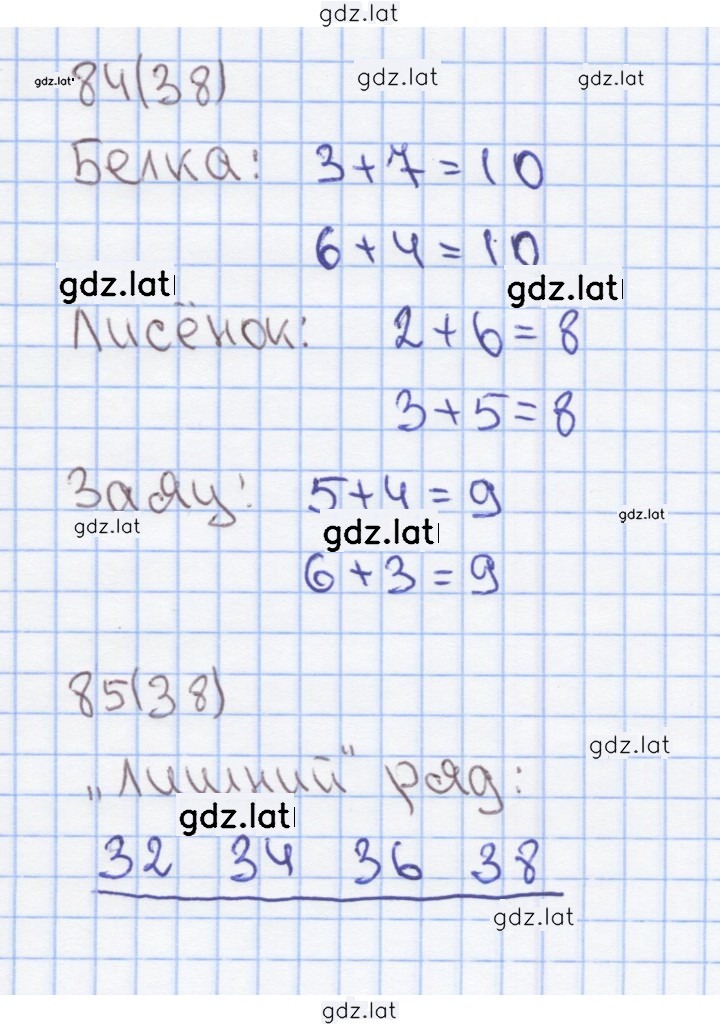 gdz.lat
gdz.lat 84(38) gdz.lat gdz.lat
Белка: 3+7=10
6+4=10
gdz.lat gdz.lat
Лисёнок: 2+6=8
3+5=8
Заяц: 5+4=9
gdz.lat gdz.lat gdz.lat
6+3=9
85(38)
gdz.lat
„Лишний" ряд:
gdz.lat
32 34 36 38
gdz.lat
gdz.lat